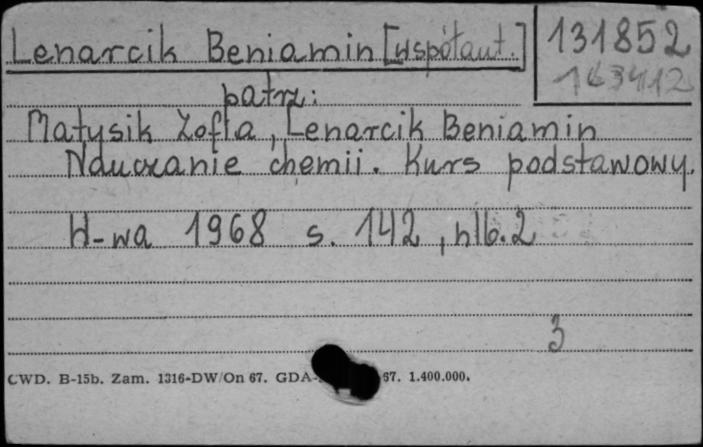 Lenarcik Beniamin [współaut.]
131852
patrz:
Matysik Zofia, Lenarcik Beniamin
Nauczanie chemii. Kurs podstawowy.
W-wa 1968 s. 142, nlb. 2
3
CWD. B-15b. Zam. 1316-DW/On 67. GDA- 67. 1.400.000.